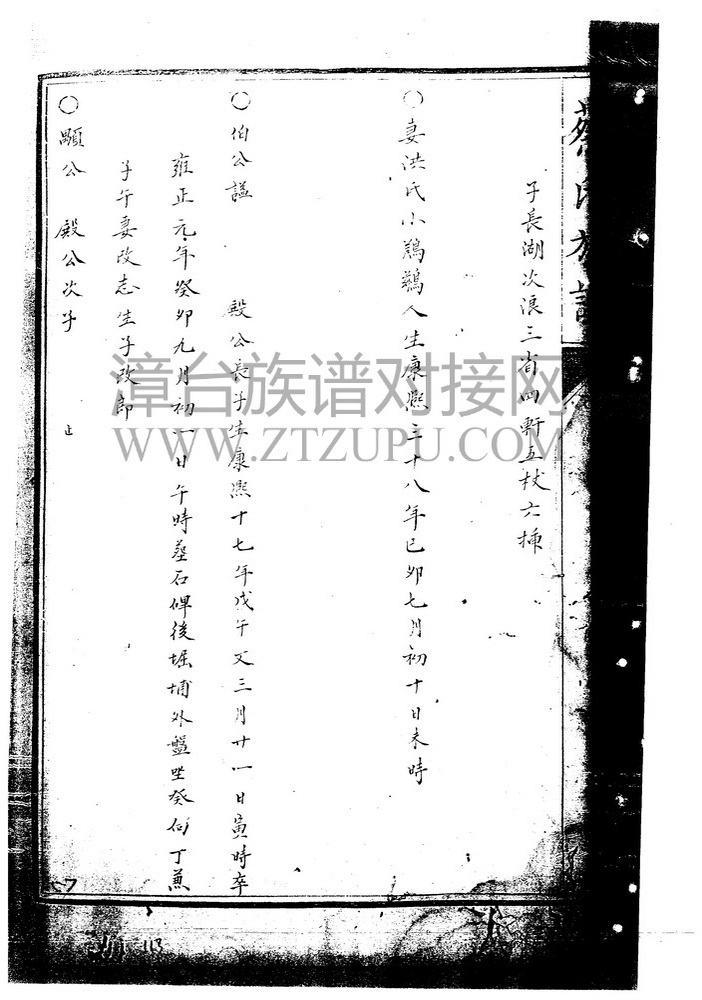 蔡氏族譜
子長湖次浪三省四軒五杖六插
○妻洪氏小鷓鷀人生康熙三十八年己卯七月初十日未時
○伯公謚 殿公長子生康熙十七年戊午又三月廿一日寅時卒
雍正元年癸卯九月初一日午時葬石碑後堀埔外盤坐癸向丁兼
子午妻改志生子改郎
○顯公 殿公次子 止
漳台族谱对接网
WWW.ZTZUPU.COM